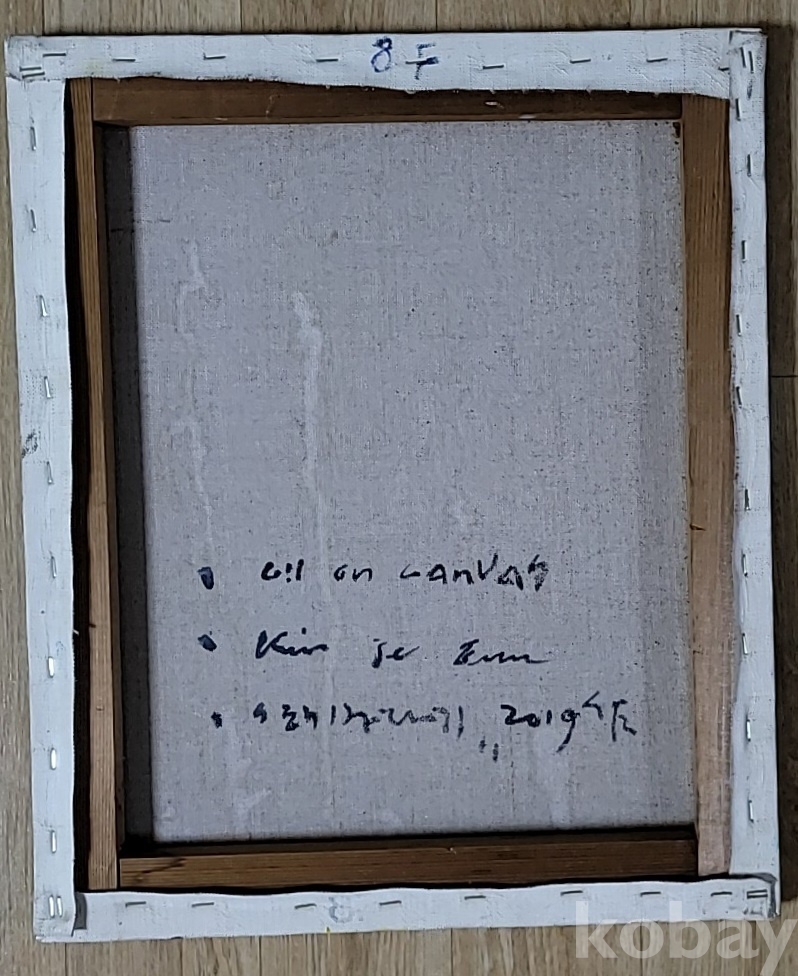 8F
oil on canvas
Kim je Eun
2019年
kobay